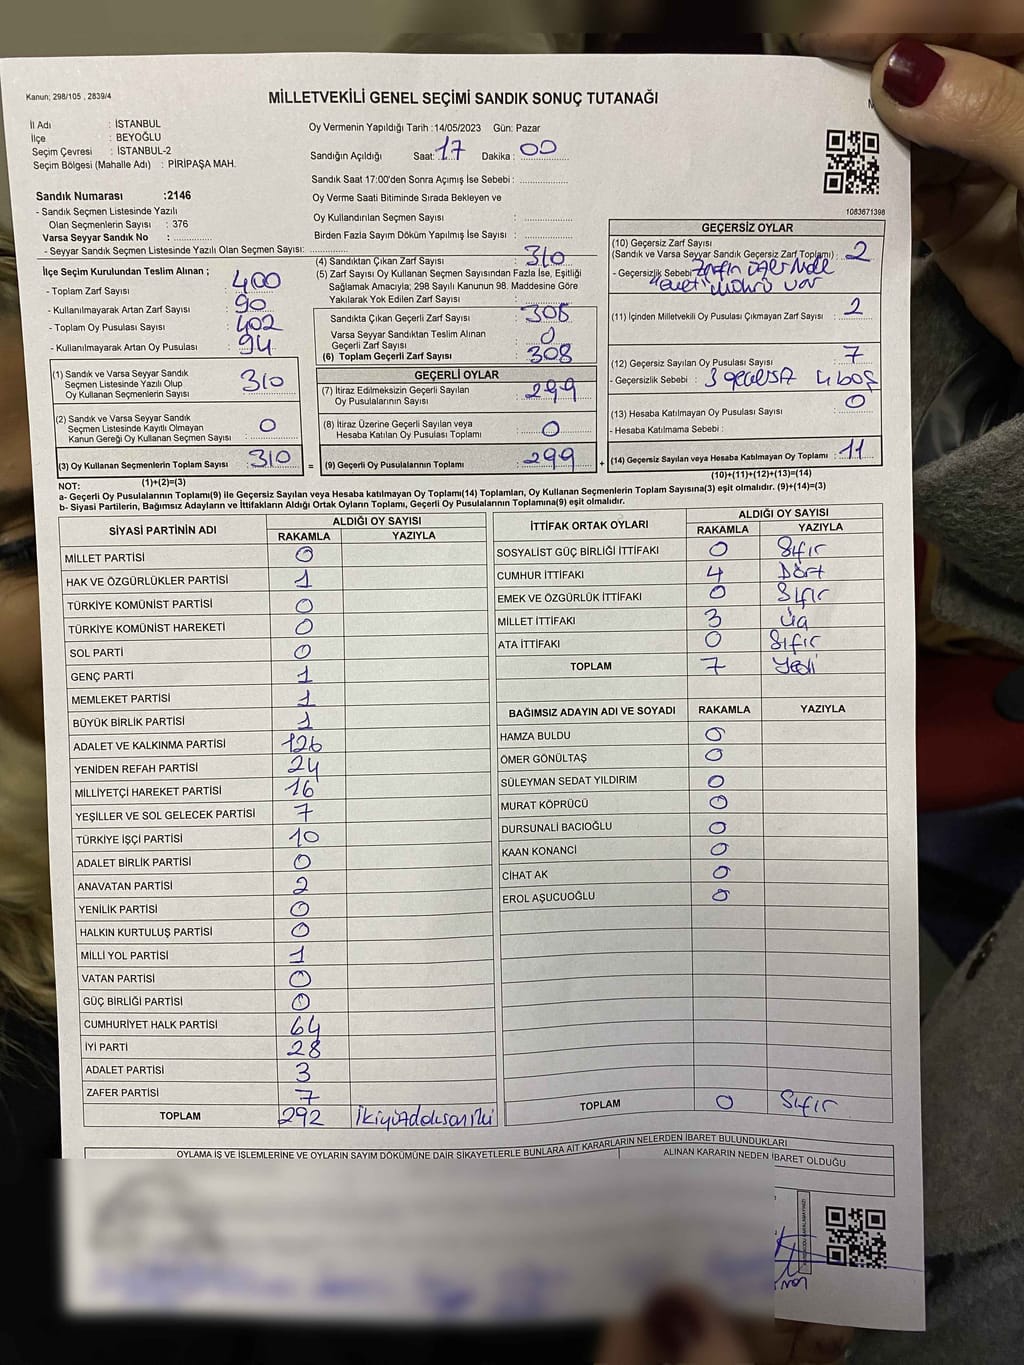 Kanun; 298/105 , 2839/4
MİLLETVEKİLİ GENEL SEÇİMİ SANDIK SONUÇ TUTANAĞI
İl Adı : İSTANBUL
İlçe : BEYOĞLU
Seçim Çevresi : İSTANBUL-2
Seçim Bölgesi (Mahalle Adı) : PİRİPAŞA MAH.
Sandık Numarası :2146
- Sandık Seçmen Listesinde Yazılı
Olan Seçmenlerin Sayısı : 376
Varsa Seyyar Sandık No :
- Seyyar Sandık Seçmen Listesinde Yazılı Olan Seçmen Sayısı:
Oy Vermenin Yapıldığı Tarih :14/05/2023 Gün: Pazar
Sandığın Açıldığı Saat: 17 Dakika : 00
Sandık Saat 17:00'den Sonra Açımış İse Sebebi :
Oy Verme Saati Bitiminde Sırada Bekleyen ve
Oy Kullandırılan Seçmen Sayısı :
Birden Fazla Sayım Döküm Yapılmış İse Sayısı :
1083671398
İlçe Seçim Kurulundan Teslim Alınan ;
- Toplam Zarf Sayısı : 400
- Kullanılmayarak Artan Zarf Sayısı : 90
- Toplam Oy Pusulası Sayısı : 402
- Kullanılmayarak Artan Oy Pusulası : 94
(1) Sandık ve Varsa Seyyar Sandık
Seçmen Listesinde Yazılı Olup
Oy Kullanan Seçmenlerin Sayısı : 310
(2) Sandık ve Varsa Seyyar Sandık
Seçmen Listesinde Kayıtlı Olmayan
Kanun Gereği Oy Kullanan Seçmen Sayısı : 0
(3) Oy Kullanan Seçmenlerin Toplam Sayısı : 310
(1)+(2)=(3)
(4) Sandıktan Çıkan Zarf Sayısı : 310
(5) Zarf Sayısı Oy Kullanan Seçmen Sayısından Fazla İse, Eşitliği
Sağlamak Amacıyla; 298 Sayılı Kanunun 98. Maddesine Göre
Yakılarak Yok Edilen Zarf Sayısı :
Sandıkta Çıkan Geçerli Zarf Sayısı : 308
Varsa Seyyar Sandıktan Teslim Alınan
Geçerli Zarf Sayısı : 0
(6) Toplam Geçerli Zarf Sayısı : 308
GEÇERLİ OYLAR
(7) İtiraz Edilmeksizin Geçerli Sayılan
Oy Pusulalarının Sayısı : 299
(8) İtiraz Üzerine Geçerli Sayılan veya
Hesaba Katılan Oy Pusulası Toplamı : 0
= (9) Geçerli Oy Pusulalarının Toplamı : 299 +
GEÇERSİZ OYLAR
(10) Geçersiz Zarf Sayısı
(Sandık ve Varsa Seyyar Sandık Geçersiz Zarf Toplamı) : 2
- Geçersizlik Sebebi : Zarfın üzerinde
"evet" mührü var
(11) İçinden Milletvekili Oy Pusulası Çıkmayan Zarf Sayısı : 2
(12) Geçersiz Sayılan Oy Pusulası Sayısı : 7
- Geçersizlik Sebebi : 3 geçersiz 4 boş
(13) Hesaba Katılmayan Oy Pusulası Sayısı : 0
- Hesaba Katılmama Sebebi :
(14) Geçersiz Sayılan veya Hesaba Katılmayan Oy Toplamı : 11
(10)+(11)+(12)+(13)=(14)
NOT:
a- Geçerli Oy Pusulalarının Toplamı(9) ile Geçersiz Sayılan veya Hesaba katılmayan Oy Toplamı(14) Toplamları, Oy Kullanan Seçmenlerin Toplam Sayısına(3) eşit olmalıdır. (9)+(14)=(3)
b- Siyasi Partilerin, Bağımsız Adayların ve İttifakların Aldığı Ortak Oyların Toplamı, Geçerli Oy Pusulalarının Toplamına(9) eşit olmalıdır.
SİYASİ PARTİNİN ADI ALDIĞI OY SAYISI
RAKAMLA YAZIYLA
MİLLET PARTİSİ 0
HAK VE ÖZGÜRLÜKLER PARTİSİ 1
TÜRKİYE KOMÜNİST PARTİSİ 0
TÜRKİYE KOMÜNİST HAREKETİ 0
SOL PARTİ 0
GENÇ PARTİ 1
MEMLEKET PARTİSİ 1
BÜYÜK BİRLİK PARTİSİ 1
ADALET VE KALKINMA PARTİSİ 126
YENİDEN REFAH PARTİSİ 24
MİLLİYETÇİ HAREKET PARTİSİ 16
YEŞİLLER VE SOL GELECEK PARTİSİ 7
TÜRKİYE İŞÇİ PARTİSİ 10
ADALET BİRLİK PARTİSİ 0
ANAVATAN PARTİSİ 2
YENİLİK PARTİSİ 0
HALKIN KURTULUŞ PARTİSİ 0
MİLLİ YOL PARTİSİ 1
VATAN PARTİSİ 0
GÜÇ BİRLİĞİ PARTİSİ 0
CUMHURİYET HALK PARTİSİ 64
İYİ PARTİ 28
ADALET PARTİSİ 3
ZAFER PARTİSİ 7
TOPLAM 292 İkiyüzdoksaniki
İTTİFAK ORTAK OYLARI ALDIĞI OY SAYISI
RAKAMLA YAZIYLA
SOSYALİST GÜÇ BİRLİĞİ İTTİFAKI 0 Sıfır
CUMHUR İTTİFAKI 4 Dört
EMEK VE ÖZGÜRLÜK İTTİFAKI 0 Sıfır
MİLLET İTTİFAKI 3 Üç
ATA İTTİFAKI 0 Sıfır
TOPLAM 7 Yedi
BAĞIMSIZ ADAYIN ADI VE SOYADI RAKAMLA YAZIYLA
HAMZA BULDU 0
ÖMER GÖNÜLTAŞ 0
SÜLEYMAN SEDAT YILDIRIM 0
MURAT KÖPRÜCÜ 0
DURSUNALİ BACIOĞLU 0
KAAN KONANCİ 0
CİHAT AK 0
EROL AŞUCUOĞLU 0
TOPLAM 0 Sıfır
OYLAMA İŞ VE İŞLEMLERİNE VE OYLARIN SAYIM DÖKÜMÜNE DAİR ŞİKAYETLERLE BUNLARA AİT KARARLARIN NELERDEN İBARET BULUNDUKLARI
ALINAN KARARIN NEDEN İBARET OLDUĞU